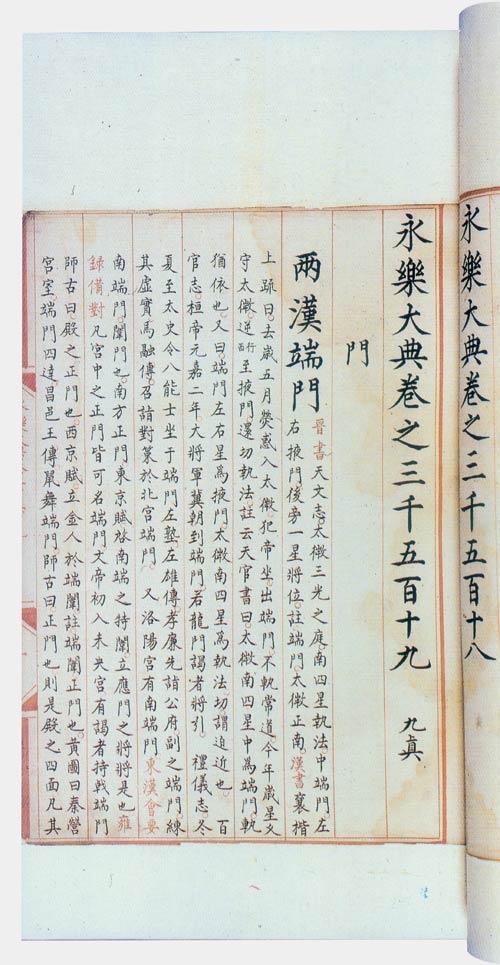 永樂大典卷之三千五百十八
永樂大典卷之三千五百十九 九真
門
兩漢端門
晉書天文志太微三光之庭南四星執法中端門左
右掖門後旁一星將位註端門太微正南漢書襄楷
上疏曰去歲五月熒惑入太微犯帝坐出端門不軌常道今年歲星久
守太微逆行西至掖門還切執法註云天官書曰太微南四星中為端門軌
猶依也又曰端門左右星為掖門太微南四星為執法切謂迫近也 百
官志桓帝元嘉二年大將軍冀朝到端門若龍門謁者將引 禮儀志冬
夏至太史令八能士坐于端門左塾左雄傳孝廉先詣公府副之端門練
其虛實馬融傳召詣對策於北宮端門 又洛陽宮有南端門東漢會要
南端門闈門也南方正門東京賦啓南端之特闈立應門之將將是也雍
錄備對凡宮中之正門皆可名端門文帝初入未央宮有謁者持戟端門
師古曰殿之正門也西京賦立金人於端闈註端闈正門也黃圖曰秦營
宮室端門四達昌邑王傳嚴舞端門師古曰正門也則是殿之四面凡其